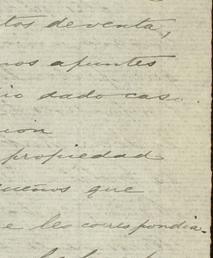 tos de venta,
nos apuntes
rio dado cas
propiedad
dueños que
e les correspondia.